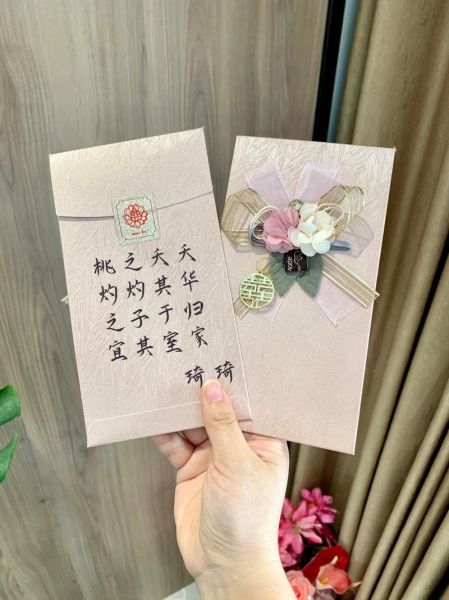 桃之夭夭
灼灼其华
之子于归
宜其室家
琦琦
囍